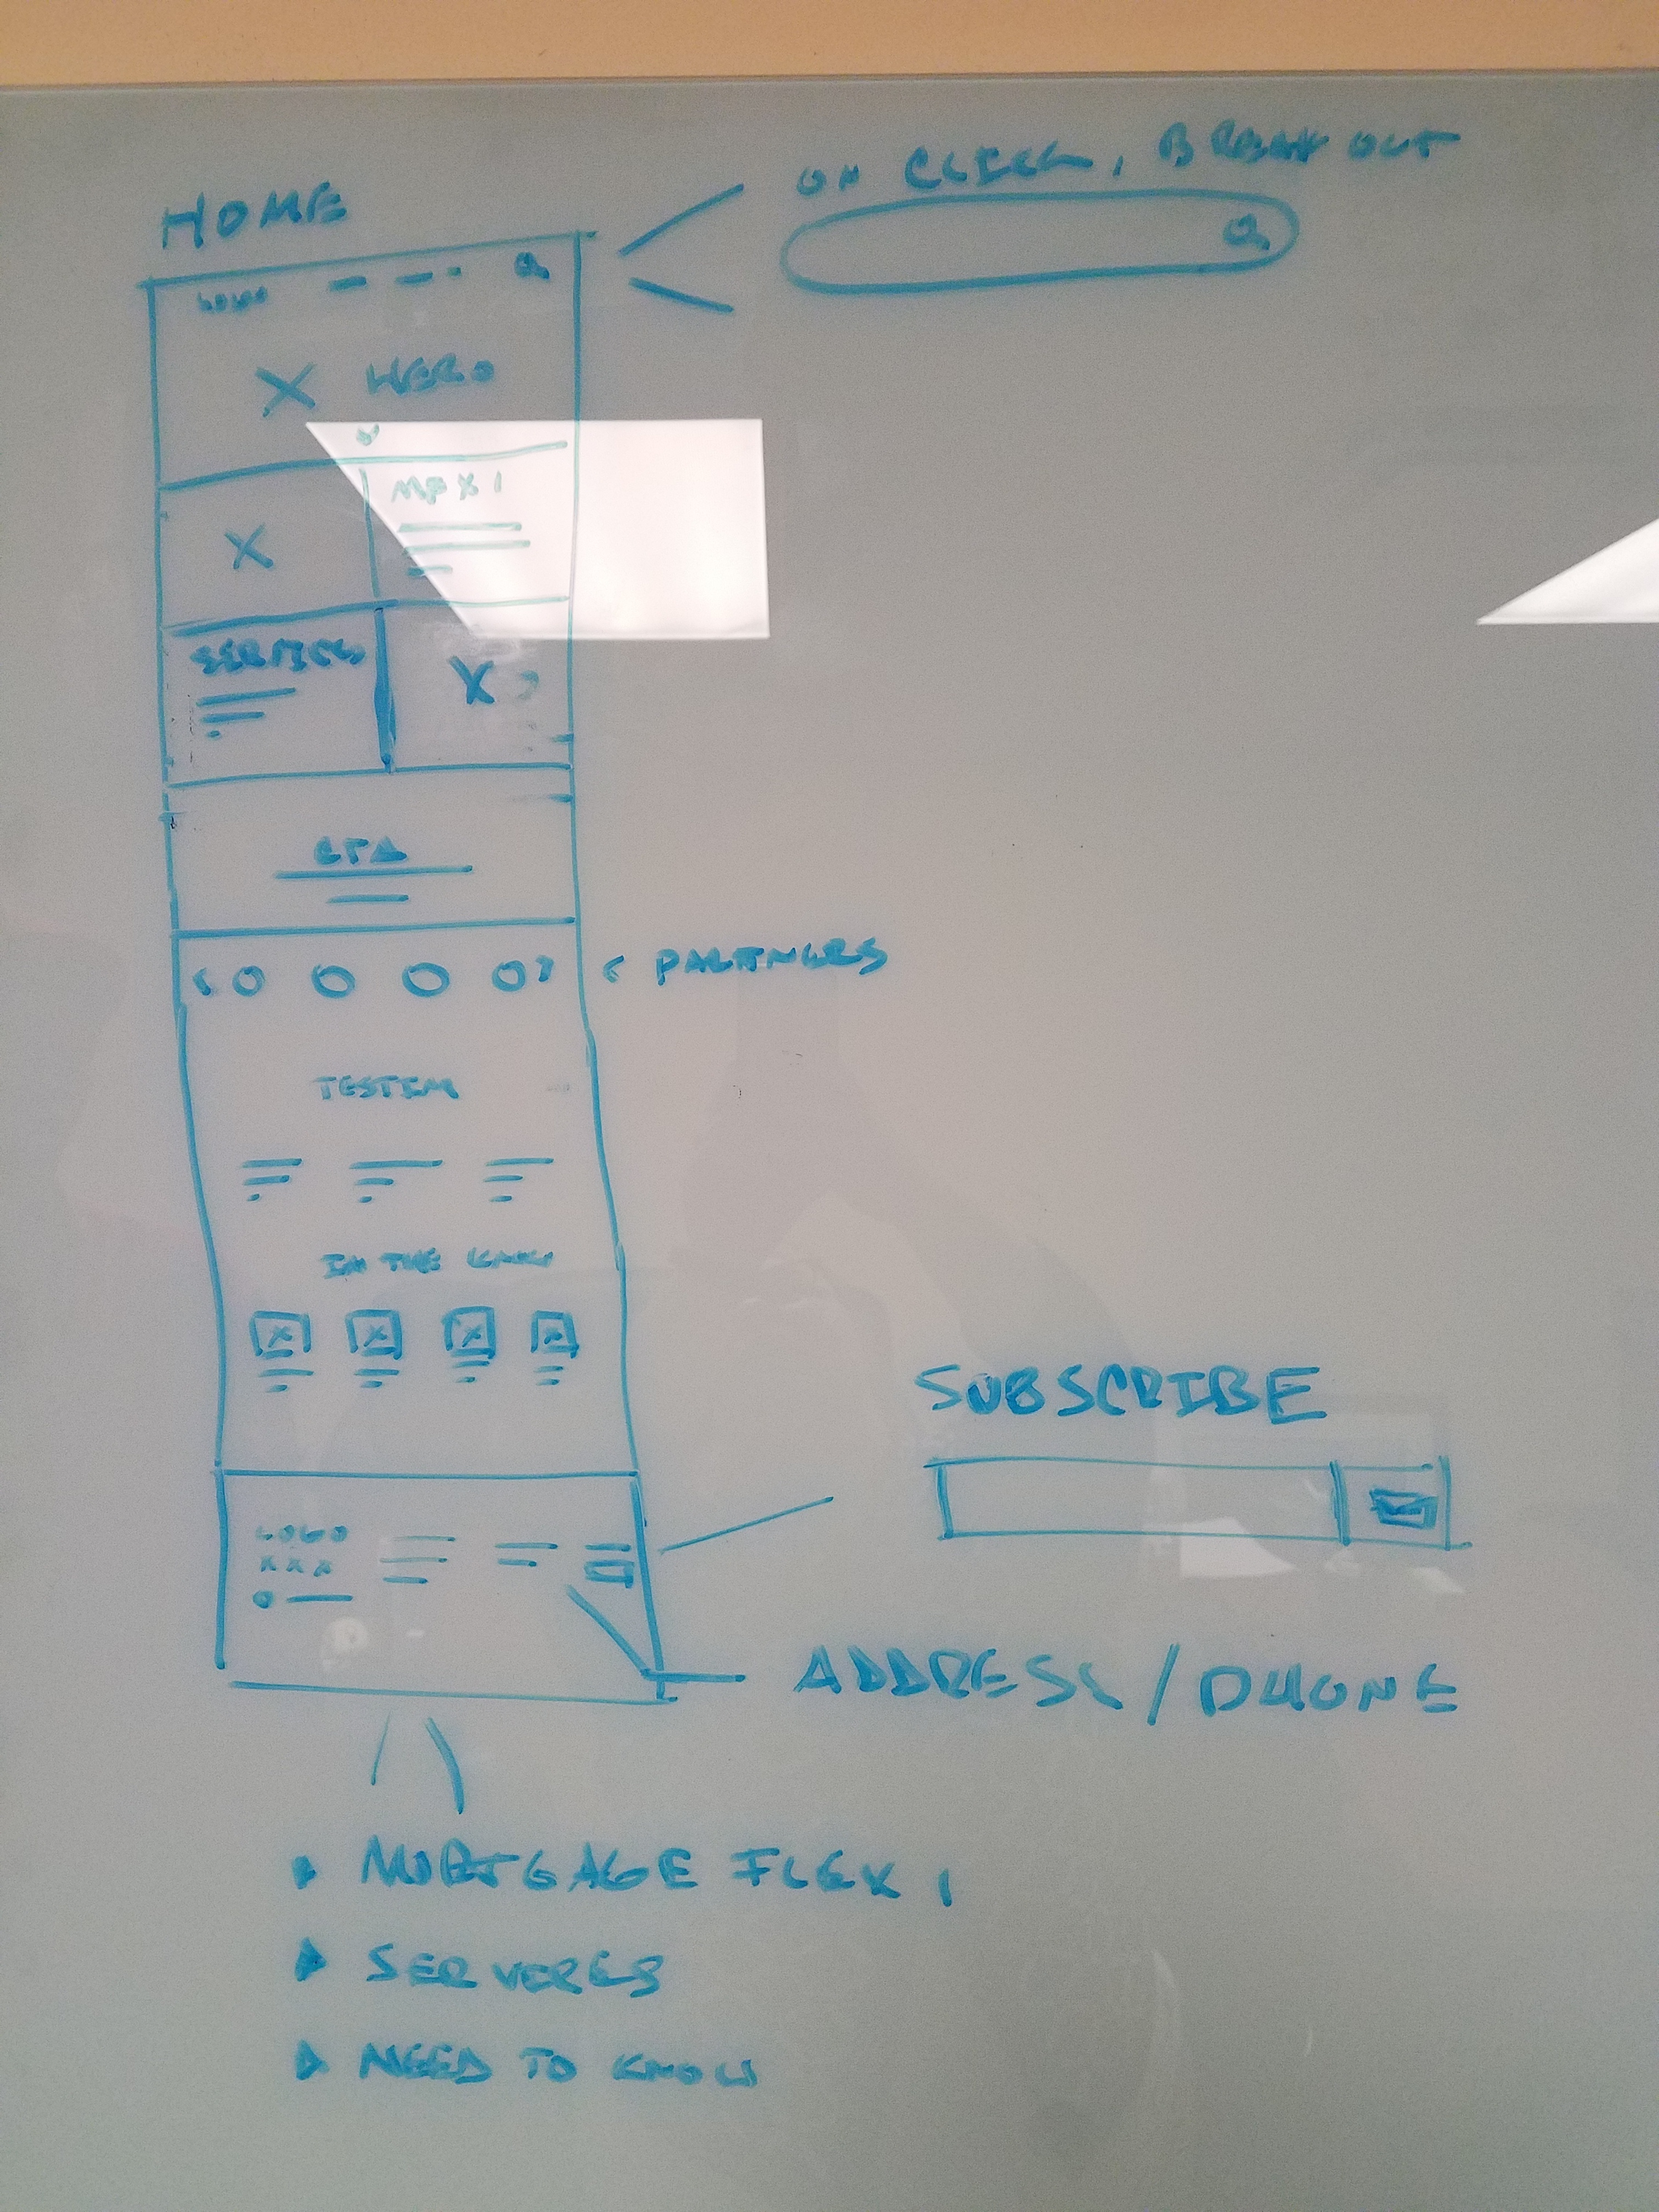 HOME
ON CLICK, BREAK OUT
LOGO
X HERO
X
SERVICES
X
CTA
< PARTNERS
TESTIM
IN THE KNOW
X X X X
SUBSCRIBE
LOGO
X X X
ADDRESS / PHONE
MORTGAGE FLEX 1
NEED TO KNOW